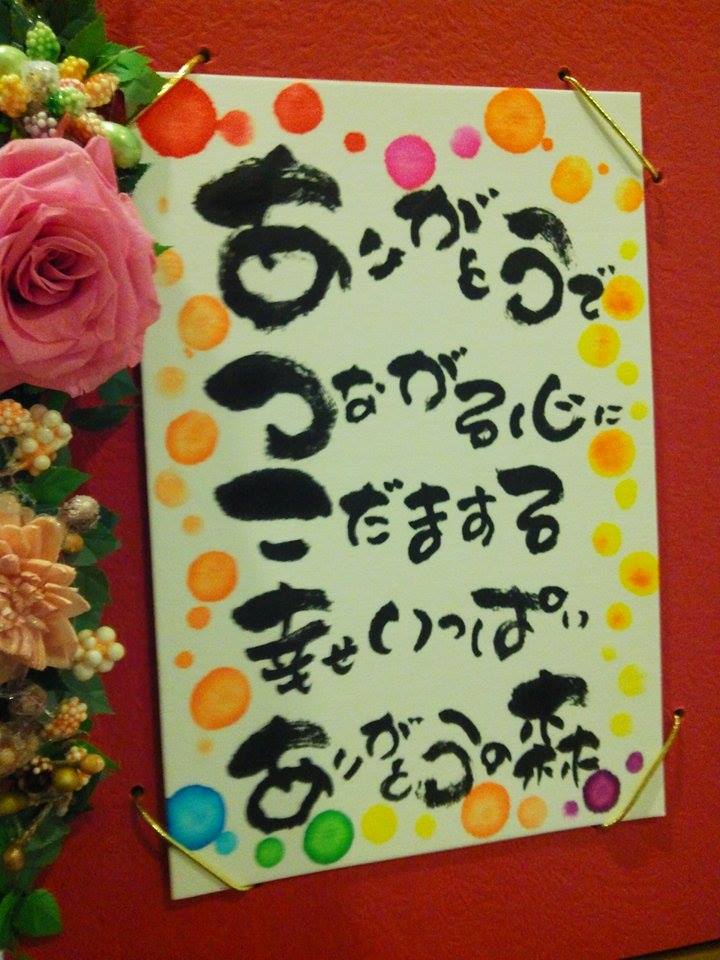 ありがとうで
つながる心に
こだまする
幸せいっぱい
ありがとうの森